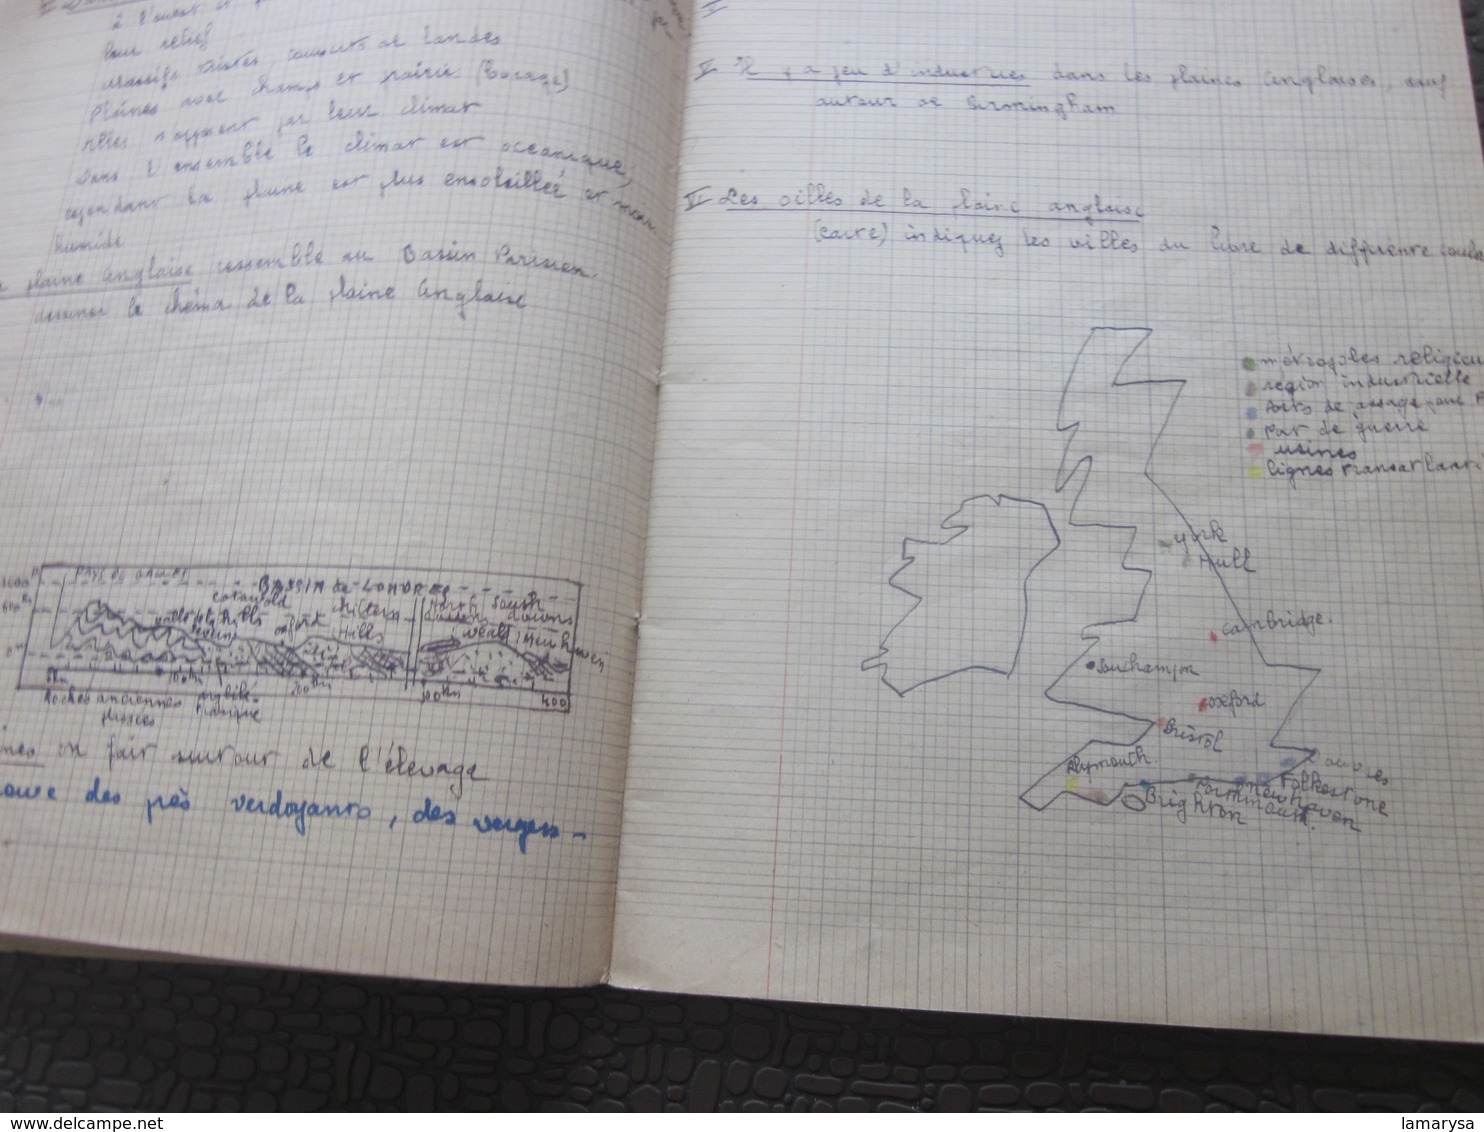 à l'ouest
leur relief
massifs couverts de landes
Plaines avec champs et prairie (bocage)
elles s'opposent par leur climat
Dans l'ensemble le climat est océanique,
cependant la plaine est plus ensoleillée et moins
humide
plaine anglaise ressemble au Bassin Parisien.
dessiner le schéma de la plaine anglaise
PAYS DE GALLES
BASSIN de LONDRES
cotswold
hills
oxford
hills
north
south
downs
weald
newhaven
0m
100km
200km
300km
400
Roches anciennes
plissées
on fait surtout de l'élevage
des prés verdoyants, des vergers -
V Il y a peu d'industries dans les plaines anglaises, sauf
autour de Birmingham
VI Les villes de la plaine anglaise
(carte) indiquez les villes du livre de différente
métropoles
région industrielle
Ports de
Port de guerre
usines
lignes
york
Hull
cambridge.
Southampton
oxford
Bristol
Plymouth
Douvres
Folkestone
newhaven
Portsmouth.
Brighton
www.delcampe.net
lamarysa